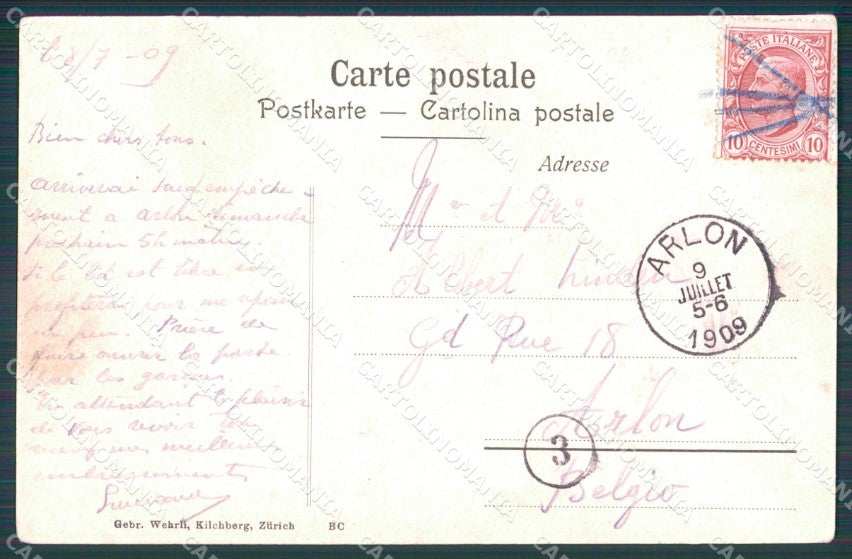 le 8/7 - 09
Carte postale
Postkarte — Cartolina postale
Adresse
POSTE ITALIANE
10 CENTESIMI 10
Bien chers tous.
arriverai sauf empêche
ment a Arlon dimanche
prochain 5h matin
Si le lit est libre en
profiterai pour me reposer
un peu. Prière de
faire ouvrir la porte
par les
En attendant le plaisir
de vous revoir
avec mes meilleurs
embrassements
Mr et Me
Albert
Gd Rue 18
Arlon
Belgio
ARLON
9
JUILLET
5-6
1909
3
Gebr. Wehrli, Kilchberg, Zürich BC
CARTOLINOMANIA